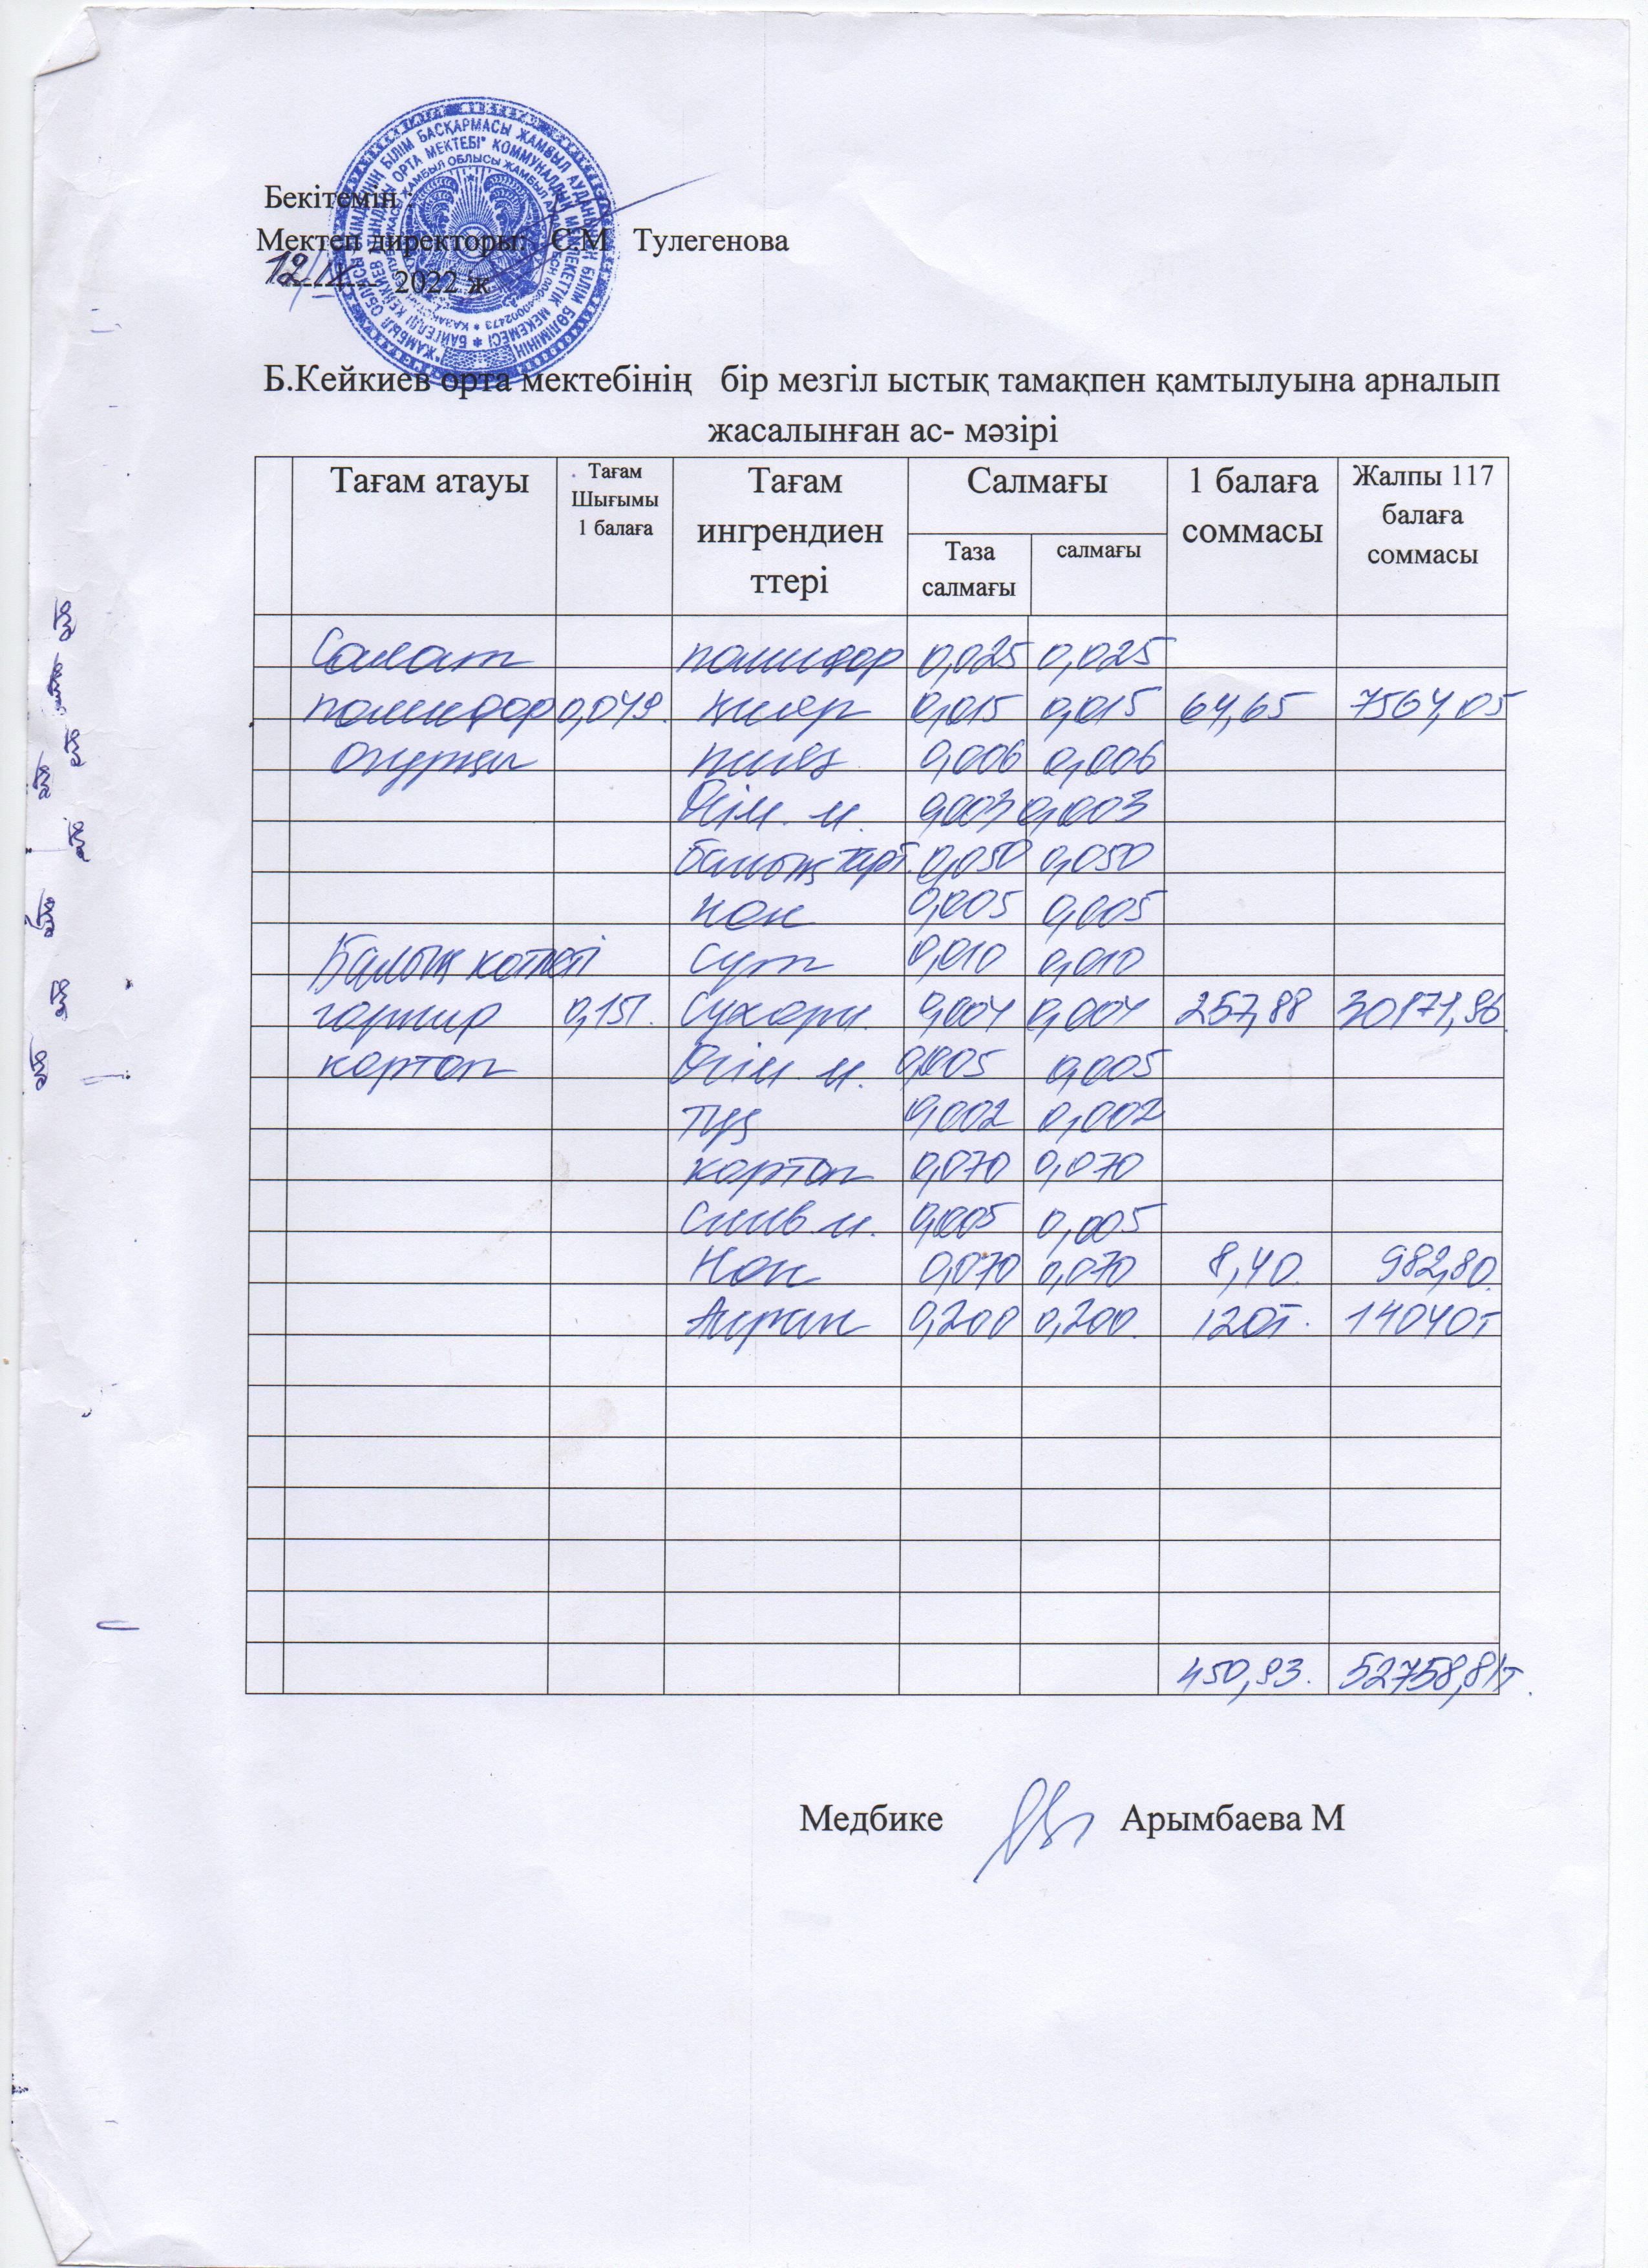 Бекітемін :
Мектеп директоры: С.М Тулегенова
12/IX 2022 ж
Б.Кейкиев орта мектебінің бір мезгіл ыстық тамақпен қамтылуына арналып
жасалынған ас- мәзірі
Тағам атауы Тағам Шығымы 1 балаға Тағам ингрендиен ттері Салмағы Таза салмағы салмағы 1 балаға соммасы Жалпы 117 балаға соммасы
Салат помидор 0,025 0,025
помидор 0,049. қияр 0,015 0,015 64,65 7564,05
огурцы пияз 0,006 0,006
Өсім. м. 0,003 0,003
балық тарт. 0,050 0,050
нан 0,005 0,005
Балық котлеті сүт 0,010 0,010
гарнир 0,151. Сухари. 0,004 0,004 257,88 30171,96.
картоп Өсім. м. 0,005 0,005
тұз 0,002 0,002
картоп 0,070 0,070
слив. м. 0,005 0,005
Нан 0,070 0,070 8,40. 982,80.
Айран 0,200 0,200. 120т. 14040т
450,93. 52758,81т.
Медбике Арымбаева М